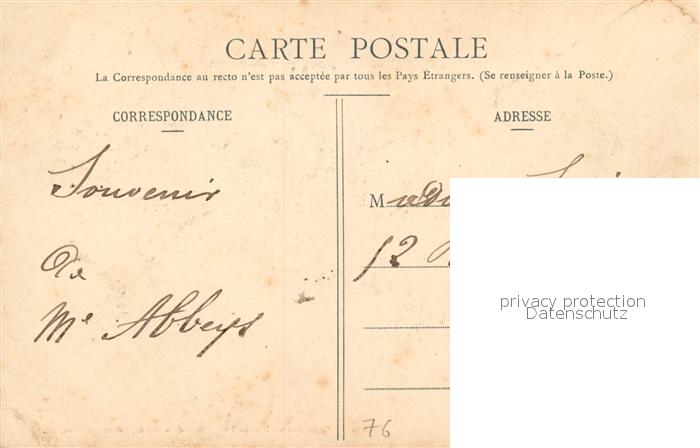 CARTE POSTALE
La Correspondance au recto n'est pas acceptée par tous les Pays Étrangers. (Se renseigner à la Poste.)
CORRESPONDANCE
ADRESSE
Souvenir
de
Me Abbeys
M
12
76
privacy protection
Datenschutz